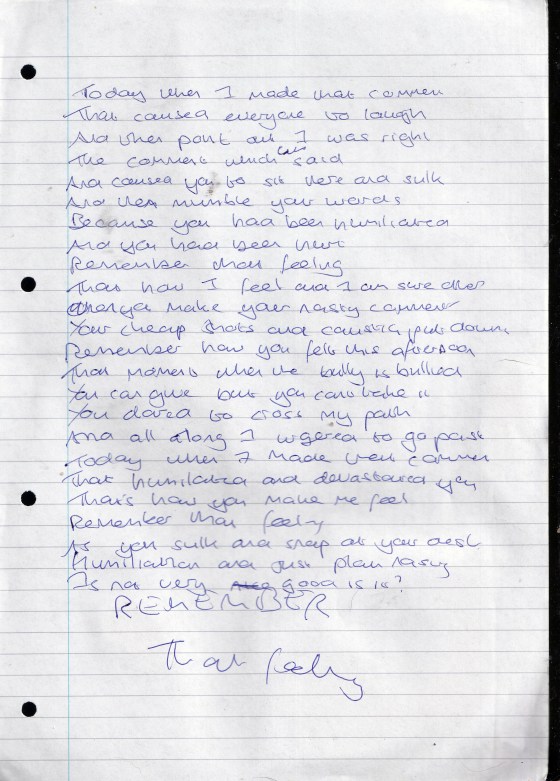 Today when I made that comment
That caused everyone to laugh
And when point out I was right
The comment which was said
And caused you to sit there and sulk
And then mumble your words
Because you had been humiliated
And you had been hurt
Remember that feeling
That how I feel and I am sure other
When you make your nasty comment
Your cheap shots and caustic put downs
Remember how you felt this afternoon
That moment when the bully is bullied
You can give but you can't take it
You dared to cross my path
And all along I to go past
Today when I made that comment
That humiliated and devastated you
That's how you make me feel
Remember that feeling
As you sulk and snap at your desk
Humiliation and just plain nasty
Is not very good is it?
REMEMBER
That feeling